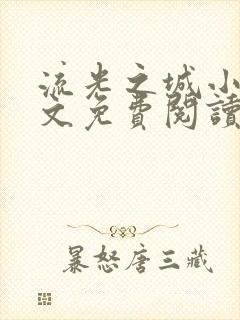 流光之城小
文免費閱讀
暴怒唐三藏